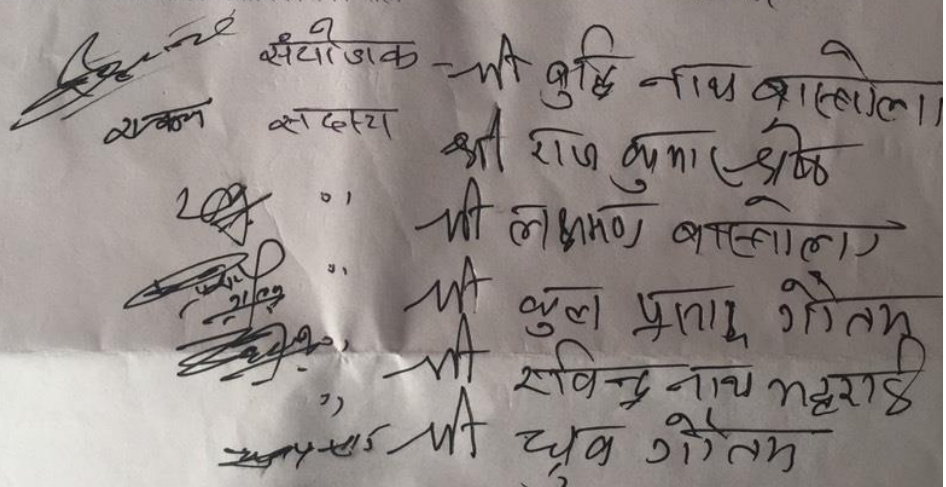 संयोजक - श्री बुद्धि नाथ बास्तोला
सदस्य श्री राज कुमार श्रेष्ठ
,, श्री लक्ष्मण बास्तोला
,, श्री कुल प्रसाद गौतम
,, श्री रविन्द्र नाथ भट्टराई
,, श्री ध्रुव गौतम